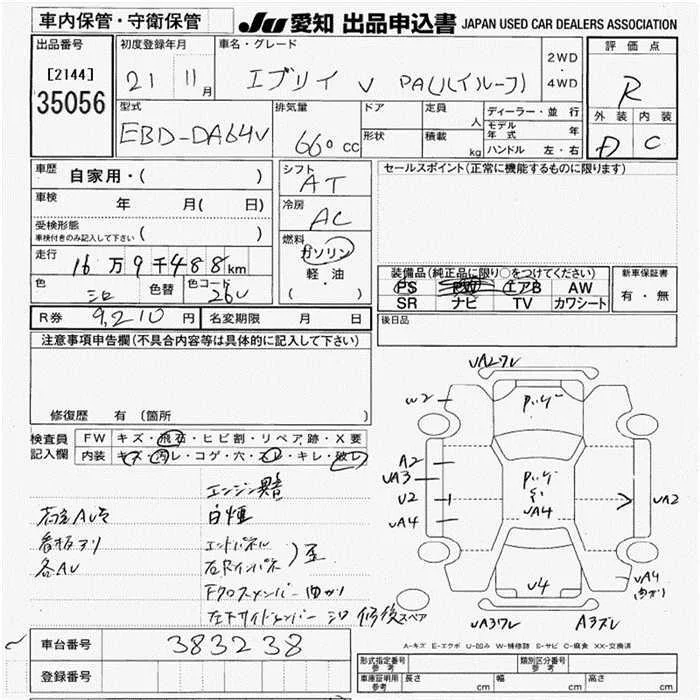 車内保管・守衛保管
JU 愛知 出品申込書 JAPAN USED CAR DEALERS ASSOCIATION
出品番号
[2144]
35056
初度登録年月
21 11月
車名・グレード
エブリイ V PA(ハイルーフ)
2WD
・
4WD
評価点
R
外装 内装
D C
型式
EBD-DA64V
排気量
660cc
ドア
形状
定員 人
積載 kg
ディーラー・並行
モデル年式 年
ハンドル 左・右
車歴 自家用・( )
車検 年 月( 日)
受検形態
車検付きのみ記入して下さい ( )
走行 16万9千488km
色 シロ 色替 色コード 26U
シフト
AT
冷房
AC
燃料
ガソリン
・
軽・油
( )
セールスポイント(正常に機能するものに限ります)
装備品(純正品に限り○をつけてください)
PS PW エアB AW
SR ナビ TV カワシート
新車保証書
有・無
R券 9,210円 名変期限 月 日
後日品
注意事項申告欄(不具合内容等は具体的に記入して下さい)
修復歴 有 (箇所 )
検査員記入欄
FW キズ・飛石・ヒビ割・リペア跡・X要
内装 キズ・汚レ・コゲ・穴・スレ・キレ・破レ
エンジン異音
白煙
看板ヨリ
各AU
エンドパネル
右Rインパネ
Fクロスメンバー曲がり
左下サイドメンバー シロ 修後
スペア
UA2ワレ
W2
A2
UA3
U2
UA4
UA4
UA2
U4
UA4
UA3ワレ
A3ズレ
A-キズ E-エクボ U-凹み W-補修跡 S-サビ C-腐食 XX-交換済
車台番号 383238
登録番号
形式指定番号 参考
類別区分番号 参考
車庫証明用 参考 長さ cm 幅 cm 高さ cm